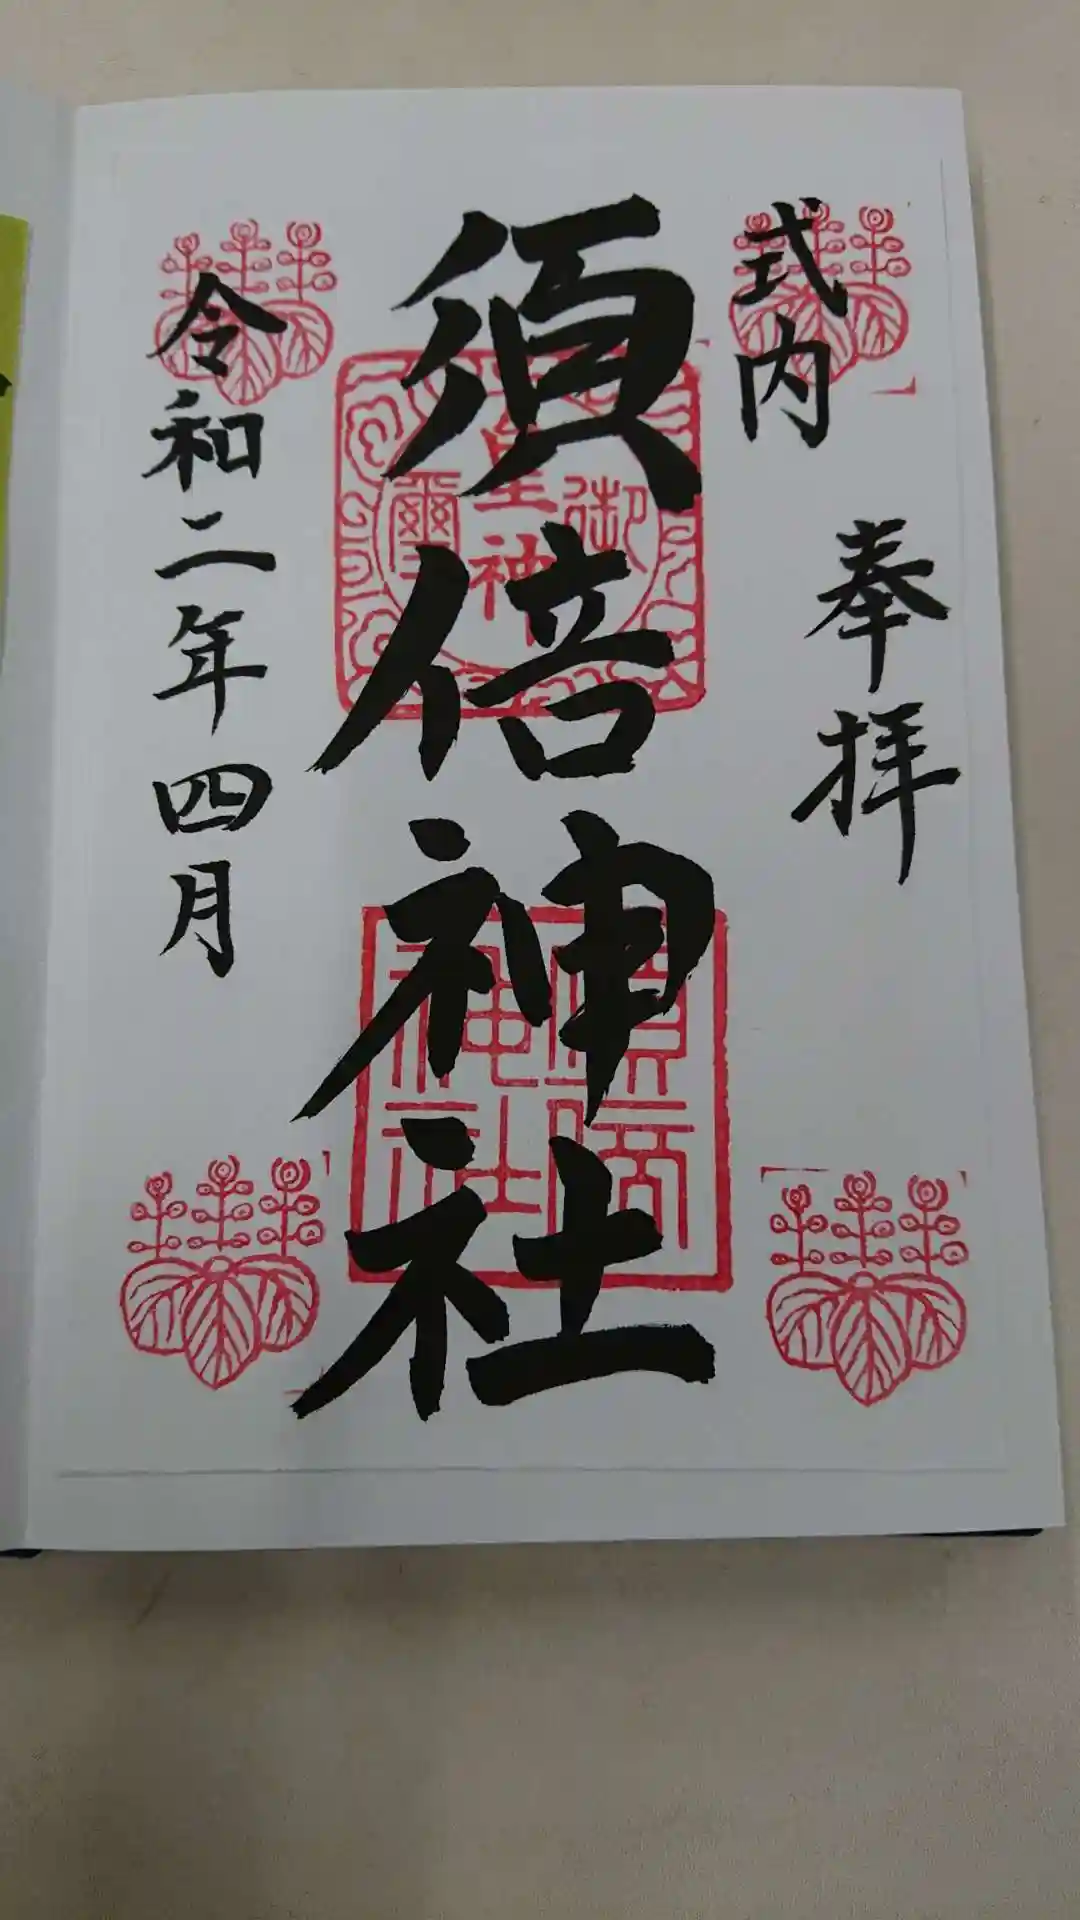 式内
奉拝
須倍神社
令和二年四月
皇神御璽